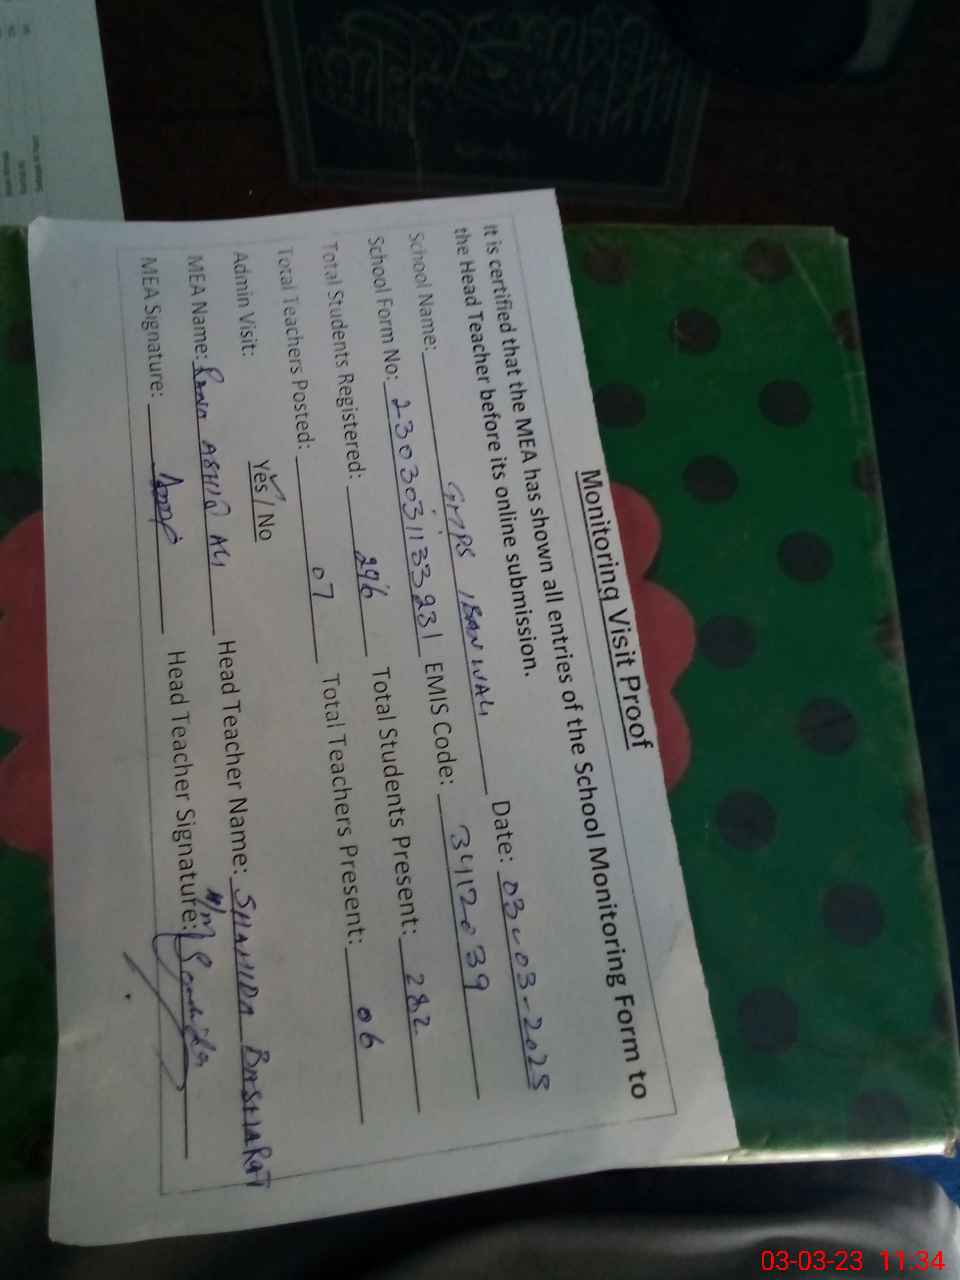 Monitoring Visit Proof
It is certified that the MEA has shown all entries of the School Monitoring Form to
the Head Teacher before its online submission.
School Name: GMPS IBAN WALI Date: 03-03-2023
School Form No: 2303031133231 EMIS Code: 34120039
Total Students Registered: 296 Total Students Present: 282
Total Teachers Posted: 07 Total Teachers Present: 06
Admin Visit: Yes / No
MEA Name: Rana ASHIQ ALI Head Teacher Name: SHAHIDA BASHARAT
MEA Signature: Head Teacher Signature: H/M
03-03-23 11:34